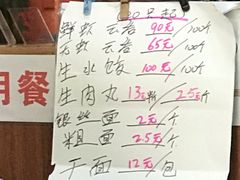 30只起
鲜虾云吞 90元/100个
大虾云吞 65元/100个
生水饺 100元/100个
生肉丸 13元/粒 25元/斤
银丝面 2元/个
粗面 2.5元/个
干面 12元/包
用餐